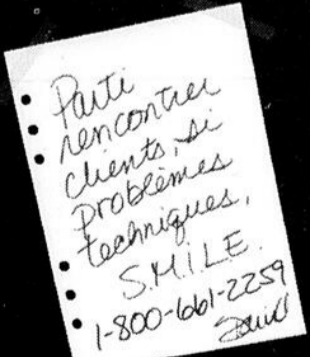 Parti
rencontrer
clients, si
problèmes
techniques,
S.M.I.L.E.
1-800-661-2259
David